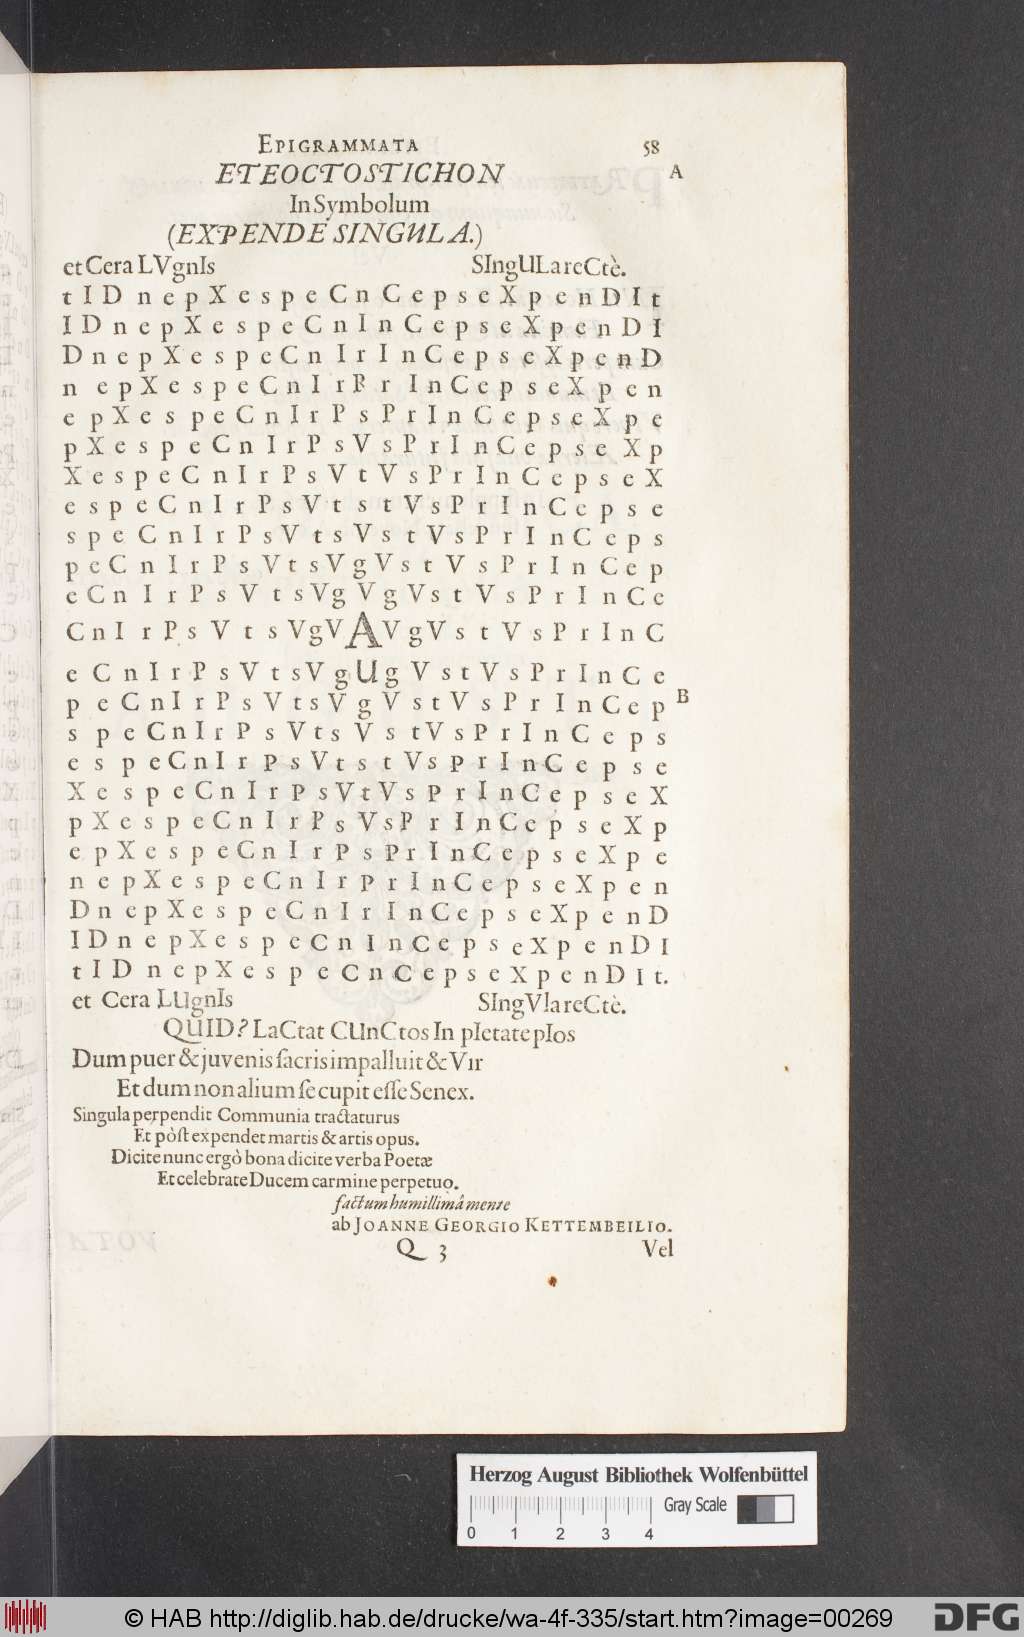 EPIGRAMMATA 58
ETEOCTOSTICHON A
In Symbolum
(EXPENDE SINGULA.)
et Cera LVgnIs SIngULareCtè.
t I D n e p X e s p e C n C e p s e X p e n D I t
I D n e p X e s p e C n I n C e p s e X p e n D I
D n e p X e s p e C n I r I n C e p s e X p e n D
n e p X e s p e C n I r P r I n C e p s e X p e n
e p X e s p e C n I r P s P r I n C e p s e X p e
p X e s p e C n I r P s V s P r I n C e p s e X p
X e s p e C n I r P s V t V s P r I n C e p s e X
e s p e C n I r P s V t s t V s P r I n C e p s e
s p e C n I r P s V t s V s t V s P r I n C e p s
p e C n I r P s V t s V g V s t V s P r I n C e p
e C n I r P s V t s V g V g V s t V s P r I n C e
C n I r P s V t s V g V A V g V s t V s P r I n C
e C n I r P s V t s V g U g V s t V s P r I n C e
p e C n I r P s V t s V g V s t V s P r I n C e p B
s p e C n I r P s V t s V s t V s P r I n C e p s
e s p e C n I r P s V t s t V s P r I n C e p s e
X e s p e C n I r P s V t V s P r I n C e p s e X
p X e s p e C n I r P s V s P r I n C e p s e X p
e p X e s p e C n I r P s P r I n C e p s e X p e
n e p X e s p e C n I r P r I n C e p s e X p e n
D n e p X e s p e C n I r I n C e p s e X p e n D
I D n e p X e s p e C n I n C e p s e X p e n D I
t I D n e p X e s p e C n C e p s e X p e n D I t.
et Cera LUgnIs SIngVlareCtè.
QUID? LaCtat CUnCtos In pIetate pIos
Dum puer & juvenis ſacris impalluit & VIr
Et dum non alium ſe cupit eſſe Senex.
Singula perpendit Communia tractaturus
Et pòſt expendet martis & artis opus.
Dicite nunc ergò bona dicite verba Poetæ
Et celebrate Ducem carmine perpetuo.
factum humillimâ mente
ab JOANNE GEORGIO KETTEMBEILIO.
Q 3 Vel
Herzog August Bibliothek Wolfenbüttel
Gray Scale
0 1 2 3 4
© HAB http://diglib.hab.de/drucke/wa-4f-335/start.htm?image=00269 DFG